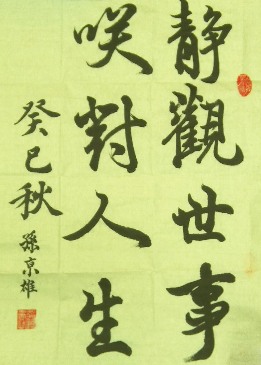 静觀世事
咲對人生
癸巳秋
孫京雄